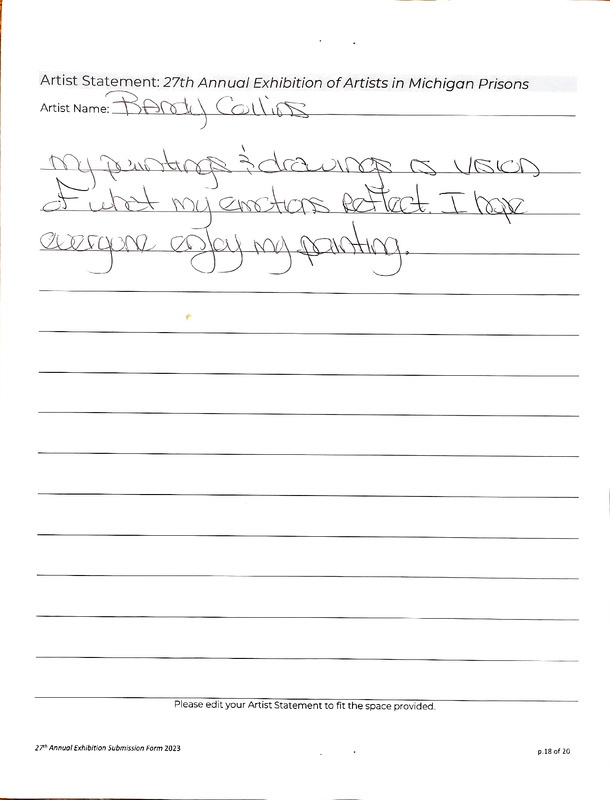 Artist Statement: 27th Annual Exhibition of Artists in Michigan Prisons
Artist Name: Randy Collins
My paintings & drawings is vision
of what my emotions reflect. I hope
everyone enjoy my painting.
Please edit your Artist Statement to fit the space provided.
27th Annual Exhibition Submission Form 2023
p.18 of 20